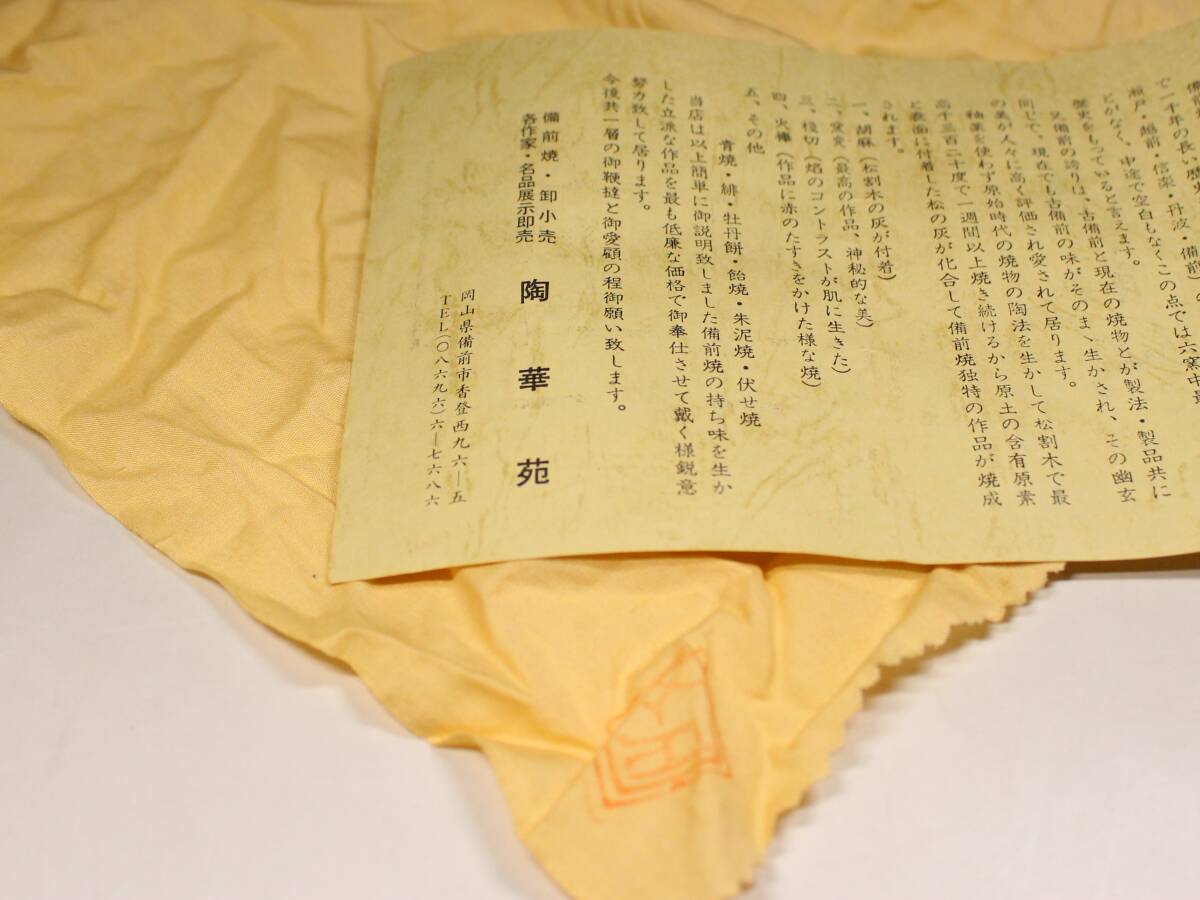 で一千年の長い歴
瀬戸・越前・信楽・丹波・備前）の
とがなく、中途で空白もなくこの点では六窯中最
歴史をもっていると言えます。
又備前の誇りは、古備前と現在の焼物とが製法・製品共に
同じで、現在でも古備前の味がそのまゝ生かされ、その幽玄
の美が人々に高く評価され愛されて居ります。
釉薬を使わず原始時代の焼物の陶法を生かして松割木で最
高千三百二十度で一週間以上焼き続けるから原土の含有原素
と表面に付着した松の灰が化合して備前焼独特の作品が焼成
されます。
一、胡麻（松割木の灰が付着）
二、窯変（最高の作品、神秘的な美）
三、桟切（焰のコントラストが肌に生きた）
四、火襷（作品に赤のたすきをかけた様な焼）
五、その他
青焼・緋・牡丹餅・飴焼・朱泥焼・伏せ焼
当店は以上簡単に御説明致しました備前焼の持ち味を生か
した立派な作品を最も低廉な価格で御奉仕させて戴く様鋭意
努力致して居ります。
今後共一層の御鞭撻と御愛顧の程御願い致します。
備前焼・卸小売
各作家・名品展示即売
陶華苑
岡山県備前市香登西九六―五
TEL（〇八六九六）六―七六八六